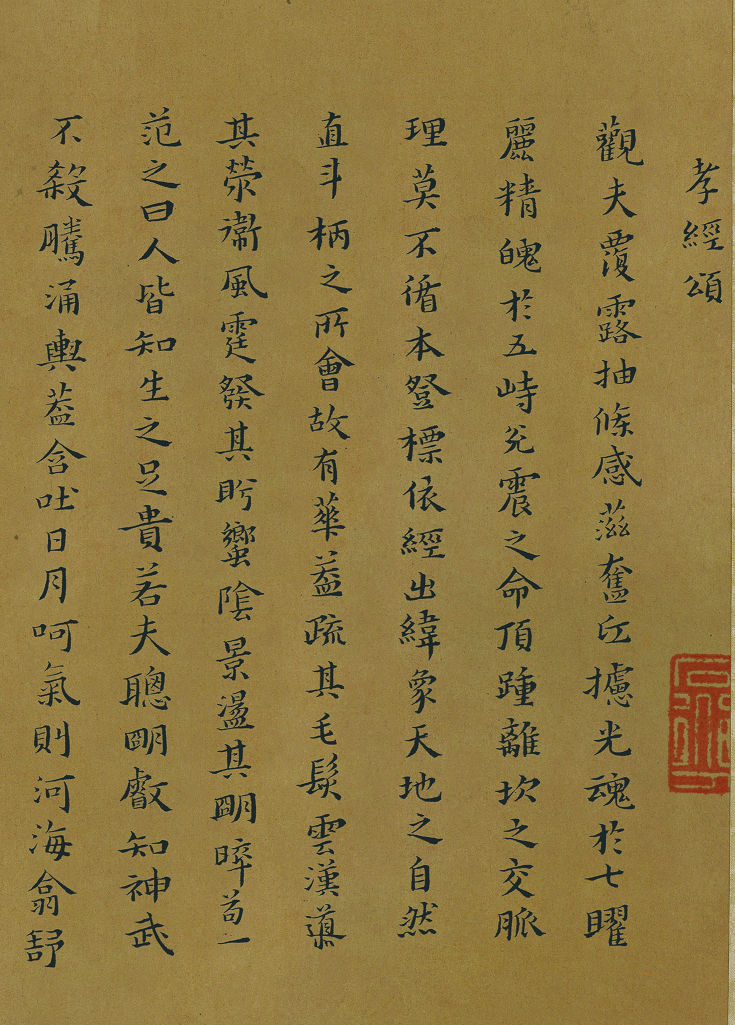 孝經頌
觀夫覆露抽條感滋奮丘攄光魂於七曜
麗精魄於五峙兊震之命頂踵離坎之交脈
理莫不循本登標依經出緯象天地之自然
直斗柄之所會故有華蓋疏其毛髮雲漢導
其滎衞風霆發其肸蠁陰景盪其朙晬苟一
范之曰人皆知生之足貴若夫聰朙叡知神武
不殺騰涌輿蓋含吐日月呵氣則河海翕舒